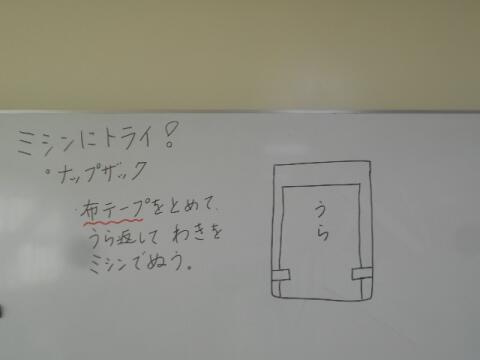 ミシンにトライ!
・ナップザック
布テープをとめて、
うら返して わきを
ミシンでぬう。
うら